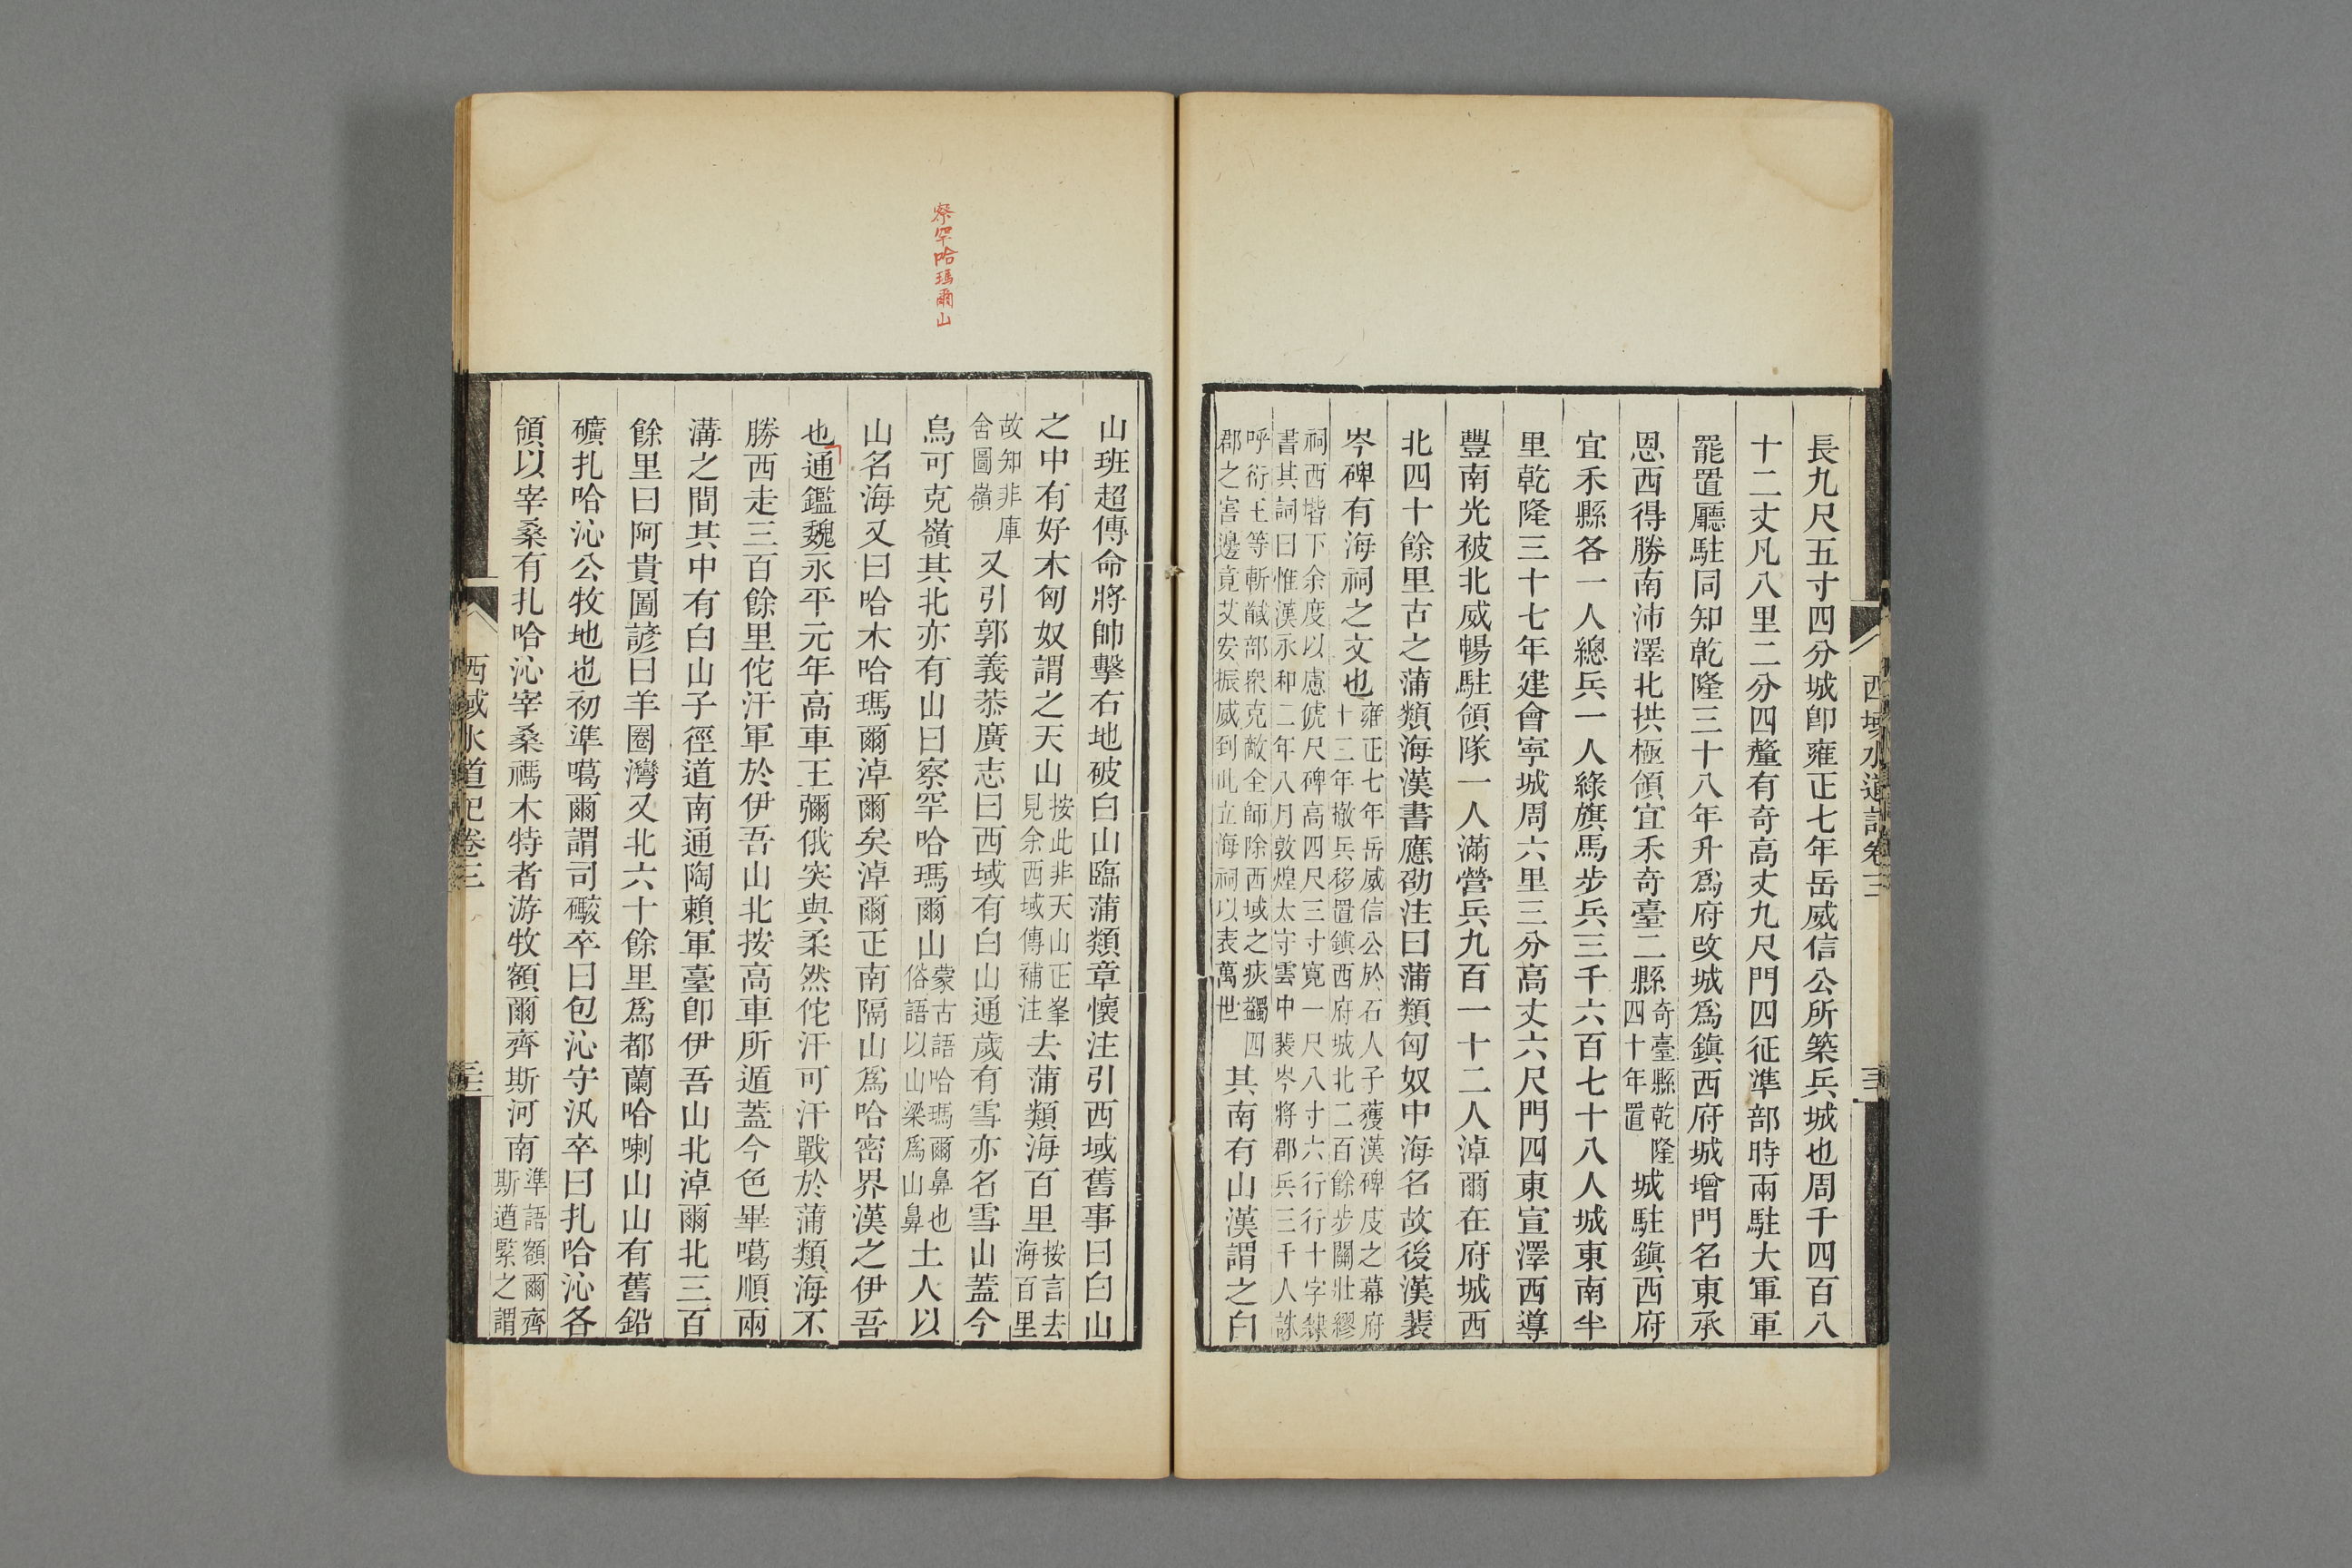 西域水道記卷三
長九尺五寸四分城卽雍正七年岳威信公所築兵城也周千四百八
十二丈凡八里二分四釐有奇高丈九尺門四征準部時兩駐大軍軍
罷置廳駐同知乾隆三十八年升爲府改城爲鎭西府城增門名東承
恩西得勝南沛澤北拱極領宜禾奇臺二縣奇臺縣乾隆四十年置城駐鎭西府
宜禾縣各一人總兵一人綠旗馬步兵三千六百七十八人城東南半
里乾隆三十七年建會寧城周六里三分高丈六尺門四東宣澤西導
豐南光被北威暢駐領隊一人滿營兵九百一十二人淖爾在府城西
北四十餘里古之蒲類海漢書應劭注曰蒲類匈奴中海名故後漢裴
岑碑有海祠之文也雍正七年岳威信公於石人子獲漢碑庋之幕府十三年撤兵移置鎭西府城北二百餘步關壯繆
祠西堦下余度以慮俿尺碑高四尺三寸寬一尺八寸六行行十字隸書其詞曰惟漢永和二年八月敦煌太守雲中裴岑將郡兵三千人誅
呼衍王等斬馘部衆克敵全師除西域之疢蠲四郡之害邊竟艾安振威到此立海祠以表萬世其南有山漢謂之白
山班超傳命將帥擊右地破白山臨蒲類章懷注引西域舊事曰白山
之中有好木匈奴謂之天山按此非天山正峯見余西域傳補注去蒲類海百里按言去海百里
故知非庫舍圖嶺又引郭義恭廣志曰西域有白山通歲有雪亦名雪山蓋今
烏可克嶺其北亦有山曰察罕哈瑪爾山蒙古語哈瑪爾鼻也俗語以山梁爲山鼻土人以
山名海又曰哈木哈瑪爾淖爾矣淖爾正南隔山爲哈密界漢之伊吾
也通鑑魏永平元年高車王彌俄突與柔然佗汗可汗戰於蒲類海不
勝西走三百餘里佗汗軍於伊吾山北按高車所遁蓋今色畢噶順兩
溝之間其中有白山子徑道南通陶賴軍臺卽伊吾山北淖爾北三百
餘里曰阿貴圖諺曰羊圈灣又北六十餘里爲都蘭哈喇山山有舊鉛
礦扎哈沁公牧地也初準噶爾謂司礮卒曰包沁守汛卒曰扎哈沁各
領以宰桑有扎哈沁宰桑禡木特者游牧額爾齊斯河南準語額爾齊斯遒緊之謂
西域水道記卷三
察罕哈瑪爾山